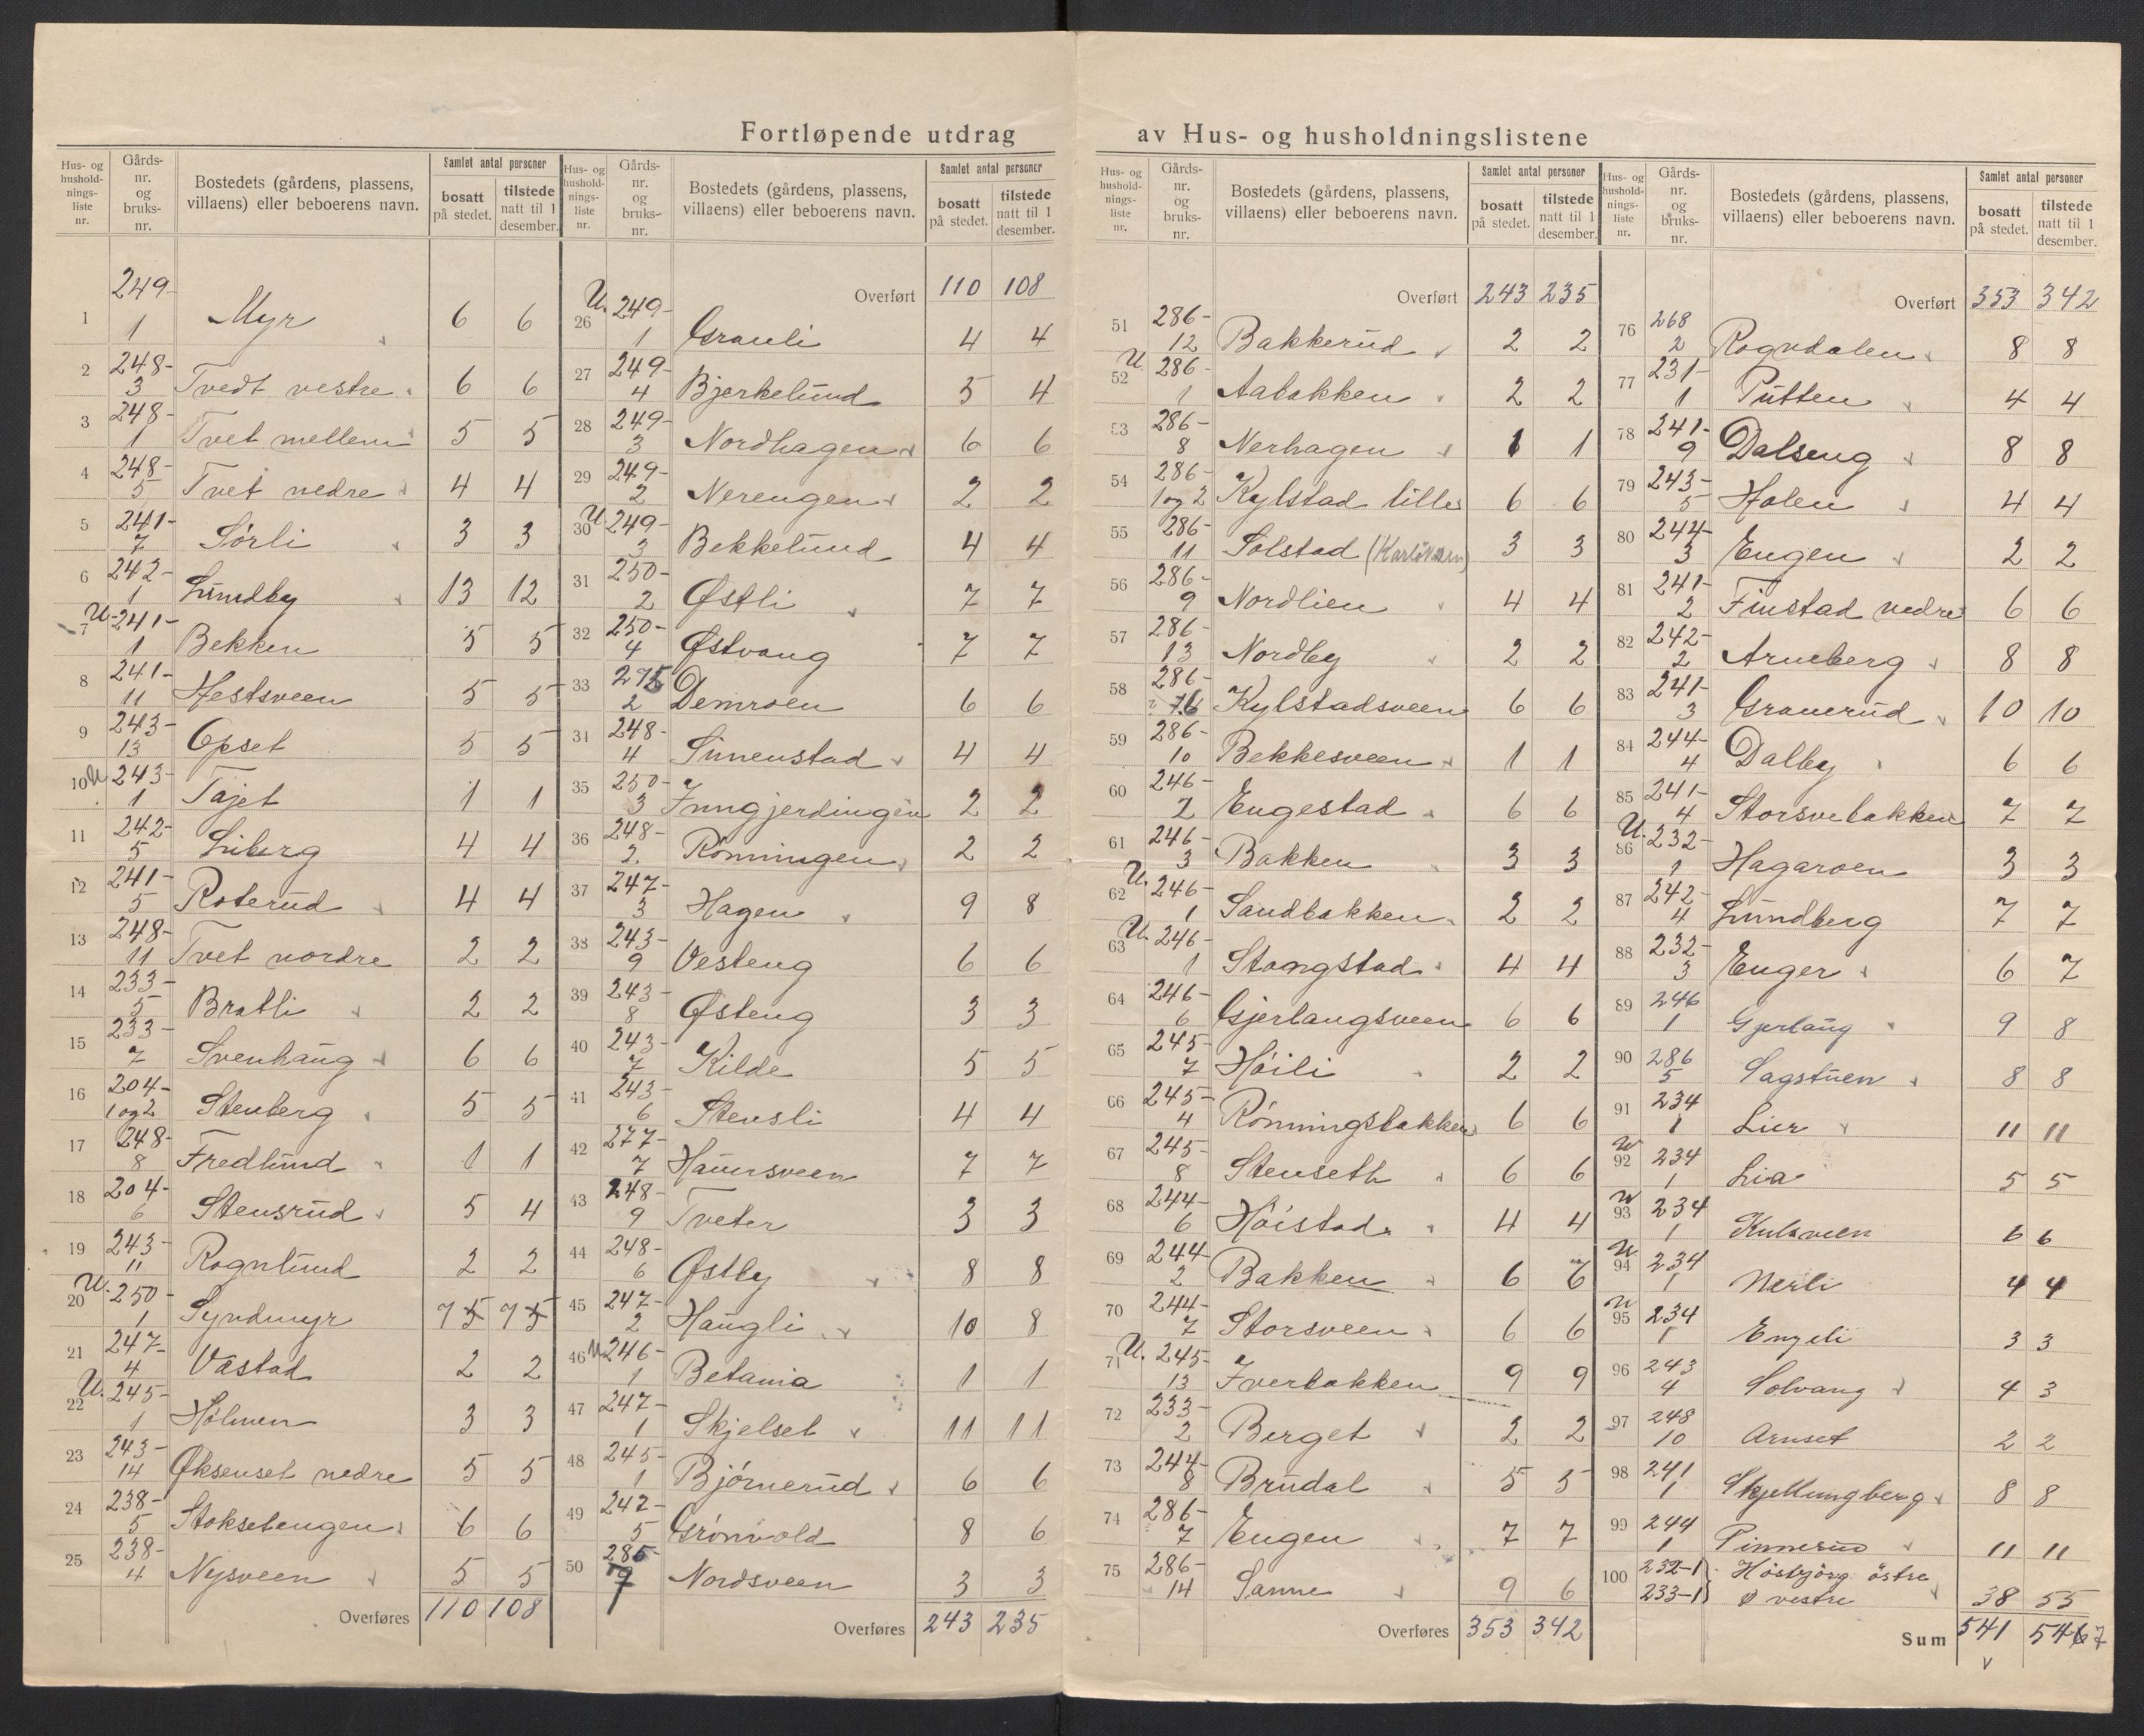 Fortløpende utdrag av Hus- og husholdningslistene
Hus- og husholdnings-liste nr. | Gårds-nr. og bruks-nr. | Bostedets (gårdens, plassens, villaens) eller beboerens navn. | Samlet antal personer | bosatt på stedet. | tilstede natt til 1 desember.
1 249-1 Myr 6 6
2 248-3 Tvedt vestre 6 6
3 248-1 Tvet mellem 5 5
4 248-5 Tvet nedre 4 4
5 241-7 Sørli 3 3
6 242-1 Lundby 13 12
U. 7 241-1 Bekken 5 5
8 241-11 Hestsveen 5 5
9 243-13 Opset 5 5
10 U 243-1 Tajet 1 1
11 242-5 Liberg 4 4
12 241-5 Roterud 4 4
13 248-11 Tvet nordre 2 2
14 233-5 Bratli 2 2
15 233-7 Svenhaug 6 6
16 204-1 og 2 Stenberg 5 5
17 248-8 Fredlund 1 1
18 204-6 Stensrud 5 4
19 243-11 Rognlund 2 2
U. 20 250-1 Syndmyr 7 5 7 5
21 247-4 Vastad 2 2
U. 22 245-1 Holmen 3 3
23 243-14 Øksenset nedre 5 5
24 238-5 Stoksetengen 6 6
25 238-4 Nysveen 5 5
Overføres 110 108
Hus- og husholdnings-liste nr. | Gårds-nr. og bruks-nr. | Bostedets (gårdens, plassens, villaens) eller beboerens navn. | Samlet antal personer | bosatt på stedet. | tilstede natt til 1 desember.
Overført 110 108
U. 26 249-1 Granli 4 4
27 249-4 Bjerkelund 5 4
28 249-3 Nordhagen 6 6
29 249-2 Nerengen 2 2
30 U 249-3 Bekkelund 4 4
31 250-2 Østli 7 7
32 250-4 Østvang 7 7
33 275 2 Demroen 6 6
34 248-4 Sinnenstad 4 4
35 250-3 Inngjerdingen 2 2
36 248-2 Rønningen 2 2
37 247-3 Hagen 9 8
38 243-9 Vesteng 6 6
39 243-8 Østeng 3 3
40 243-7 Kilde 5 5
41 243-6 Stensli 4 4
42 277-7 Haugsveen 7 7
43 248-9 Tveter 3 3
44 248-6 Østby 8 8
45 247-2 Haugli 10 8
46 U 246-1 Betania 1 1
47 247-1 Skjelset 11 11
48 245-1 Bjørnerud 6 6
49 242-5 Grønvold 8 6
50 285-7 Nordsveen 3 3
Overføres 243 235
Hus- og husholdnings-liste nr. | Gårds-nr. og bruks-nr. | Bostedets (gårdens, plassens, villaens) eller beboerens navn. | Samlet antal personer | bosatt på stedet. | tilstede natt til 1 desember.
Overført 243 235
51 286-12 Bakkerud 2 2
U. 52 286-1 Aabakken 2 2
53 286-8 Nerhagen 1 1
54 286-1 og 2 Kylstad lille 6 6
55 286-11 Solstad 3 3
56 286-9 Nordlien 4 4
57 286-13 Nordby 2 2
58 286-6 Kylstadsveen 6 6
59 286-10 Bekkesveen 1 1
60 246-2 Engestad 6 6
61 246-3 Bakken 3 3
U. 62 246-1 Sandbakken 2 2
U. 63 246-1 Stangstad 4 4
64 246-6 Gjerlaugsveen 6 6
65 245-7 Høili 2 2
66 245-4 Rønningsbakken 6 6
67 245-8 Stenseth 6 6
68 244-6 Høistad 4 4
69 244-2 Bakken 6 6
70 244-7 Storsveen 6 6
U. 71 245-13 Iverbakken 9 9
72 233-2 Berget 2 2
73 244-8 Brudal 5 5
74 286-7 Engen 7 7
75 286-14 Sanne 9 6
Overføres 353 342
Hus- og husholdnings-liste nr. | Gårds-nr. og bruks-nr. | Bostedets (gårdens, plassens, villaens) eller beboerens navn. | Samlet antal personer | bosatt på stedet. | tilstede natt til 1 desember.
Overført 353 342
76 268 2 Rogndalen 8 8
77 231-1 Putten 4 4
78 241-9 Dalseng 8 8
79 243-5 Holen 4 4
80 244-3 Engen 2 2
81 241-2 Finstad nedre 6 6
82 242-2 Arneberg 8 8
83 241-3 Graverud 10 10
84 244-4 Dalby 6 6
85 241-4 Storsvebakken 7 7
U. 86 232-1 Hagaroen 3 3
87 242-4 Lundberg 7 7
88 232-3 Enger 6 7
89 246 1 Gjerlaug 9 8
90 286 5 Sagstuen 8 8
91 234 1 Lier 11 11
U 92 234 1 Lia 5 5
U 93 234 1 Kulsveen 6 6
U 94 234 1 Nerli 4 4
U 95 234 1 Engeli 3 3
96 243 4 Solvang 4 3
97 248 10 Arnset 2 2
98 241 1 Skjellungberg 8 8
99 244 1 Pinnerud 11 11
100 232-1 Høsbjørg östre
233-1 vestre 38 55
Sum 541 547